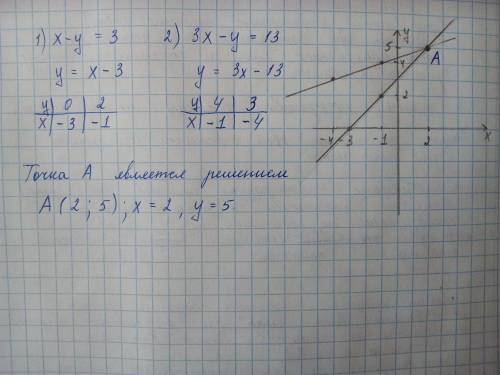 1) x-y = 3   2) 3x-y = 13
y = x-3   y = 3x-13
y | 0 | 2   y | 4 | 3
x | -3 | -1   x | -1 | -4
Точка А является решением
А (2 ; 5) ; x = 2 , y = 5
y
5
4
А
2
-4 -3 -1 2 x